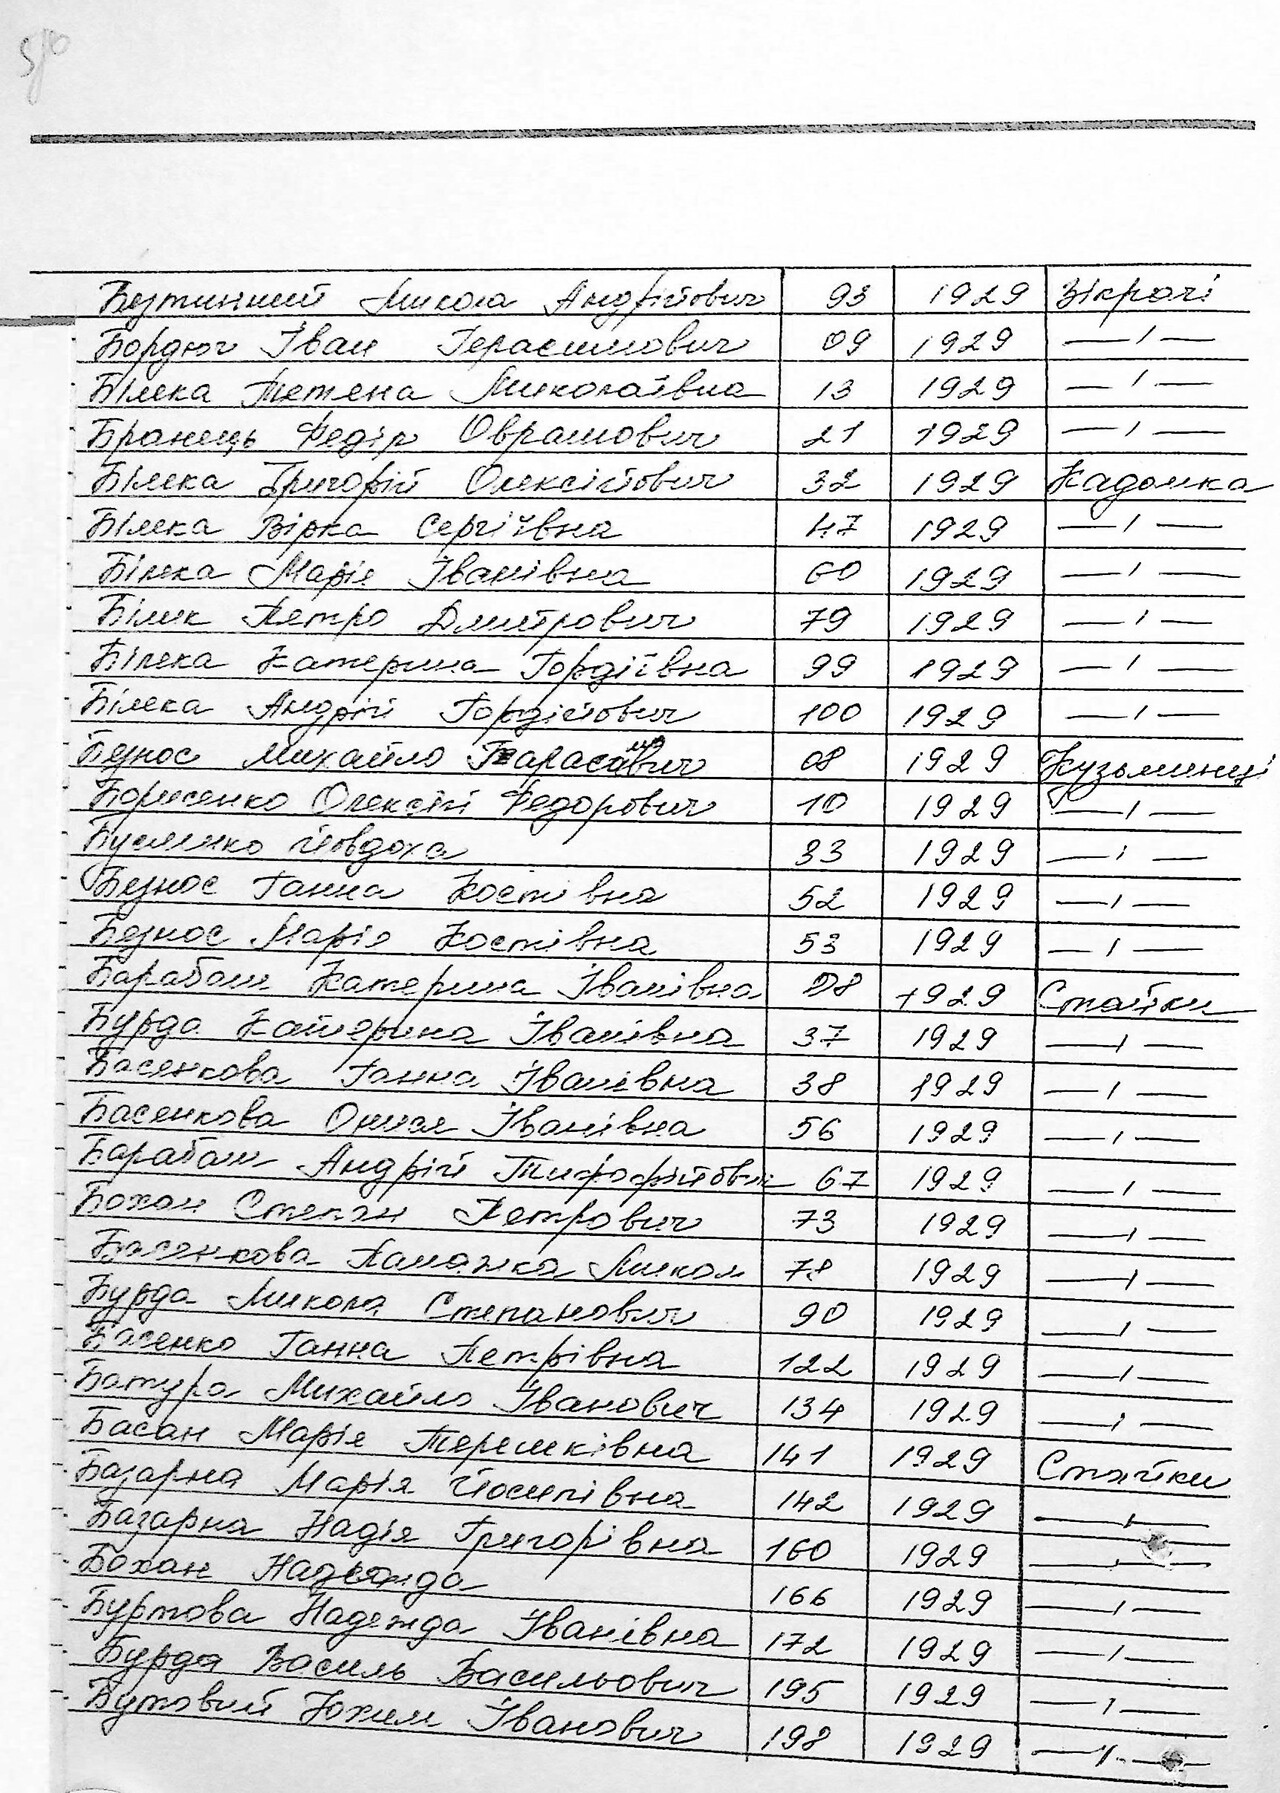 Безтинний Микола Андрійович 93 1929 Зікрачі
Бордюг Іван Герасимович 09 1929 —ı—
Білека Тетена Миколаївна 13 1929 —ı—
Бранець Федір Оврамович 21 1929 —ı—
Білека Григорій Олексійович 32 1929 Кадомка
Білека Вірка Сергіївна 47 1929 —ı—
Білека Марія Іванівна 60 1929 —ı—
Білик Петро Дмитрович 79 1929 —ı—
Білека Катерина Гордіївна 99 1929 —ı—
Білека Андрій Гордійович 100 1929 —ı—
Безнос Михайло 08 1929 Кузьминці
Борисенко Олексій Федорович 10 1929 —ı—
Бусленко Йовдоха 33 1929 —ı—
Безнос Ганна Костівна 52 1929 —ı—
Безнос Марія Костівна 53 1929 —ı—
Барабаш Катерина Іванівна 1929 Стайки
Бурда Катерина Іванівна 37 1929 —ı—
Басенкова Ганна Іванівна 38 1929 —ı—
Басенкова Онися Іванівна 56 1929 —ı—
Барабаш Андрій 67 1929 —ı—
Бохан Степан Петрович 73 1929 —ı—
Басенкова Палажка Микол 78 1929 —ı—
Бурда Микола Степанович 90 1929 —ı—
Басенко Ганна Петрівна 122 1929 —ı—
Батура Михайло Іванович 134 1929 —ı—
Басан Марія Терешківна 141 1929 Стайки
Базарна Марія Йосипівна 142 1929 —ı—
Базарна Надія Григорівна 160 1929 —ı—
Бохан Надежда 166 1929 —ı—
Буртова Надежда Іванівна 172 1929 —ı—
Бурда Василь Васильович 195 1929 —ı—
Бутовий Юхим Іванович 198 1929 —ı—